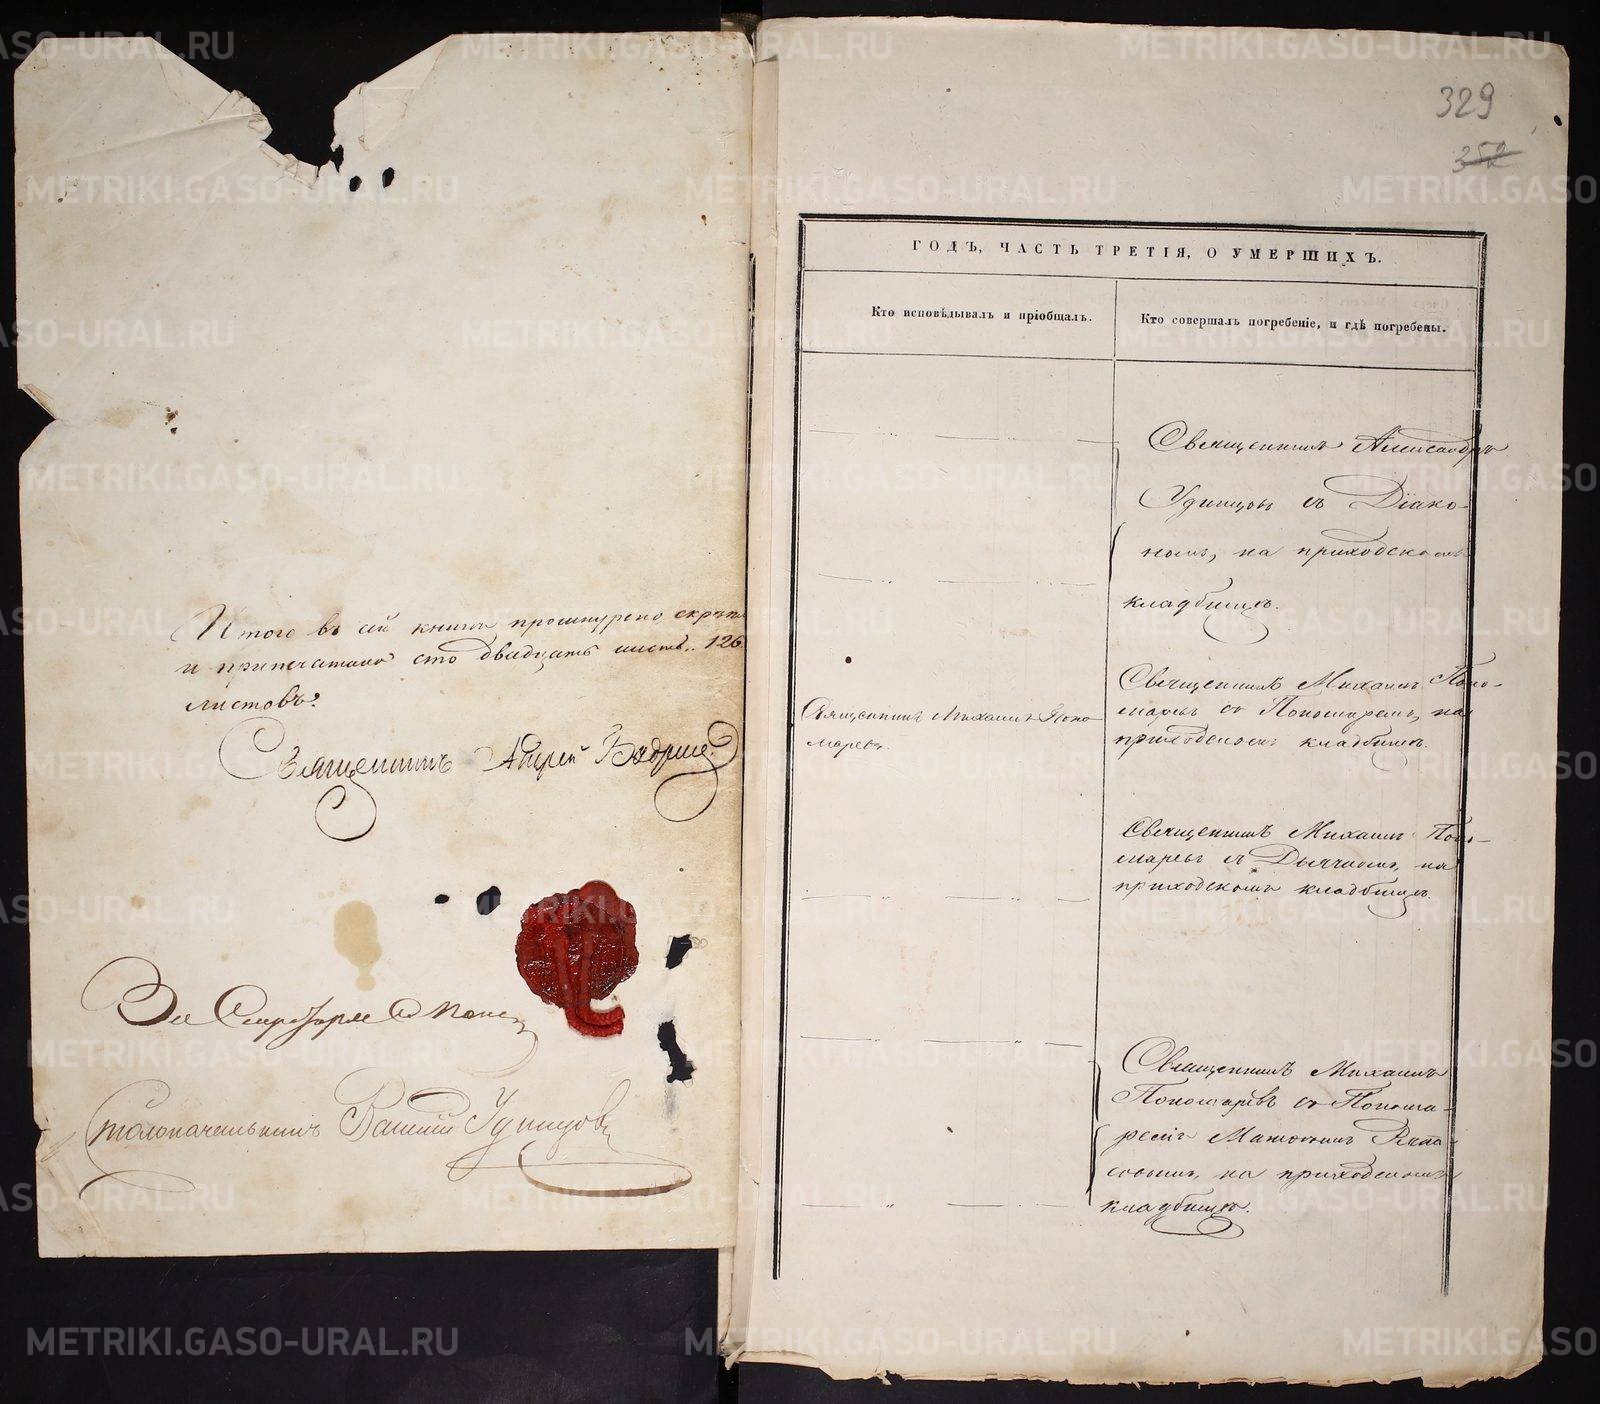 Итого въ сей книги прошнурено скрѣп
и припечатано сто двадцать шесть.. 126
листовъ.
Священникъ Андрей
За Секретаря
Столоначальникъ Василий Удинцовъ
329
352
ГОДЪ, ЧАСТЬ ТРЕТІЯ, О УМЕРШИХЪ.
Кто исповѣдывалъ и пріобщалъ.
Кто совершалъ погребеніе, и гдѣ погребены.
Священникъ Александръ
Удинцовъ съ Діако-
номъ, на приходскомъ
кладбищѣ.
Священникъ Михаилъ Поно
маревъ.
Священникъ Михаилъ Поно-
маревъ съ Пономаремъ, на
приходскомъ кладбищѣ.
Священникъ Михаилъ Поно-
маревъ съ Дьячкомъ, на
приходскомъ кладбищѣ.
Священникъ Михаилъ
Пономаревъ съ Понома-
ремъ
на приходскомъ
кладбищѣ.
METRIKI.GASO-URAL.RU